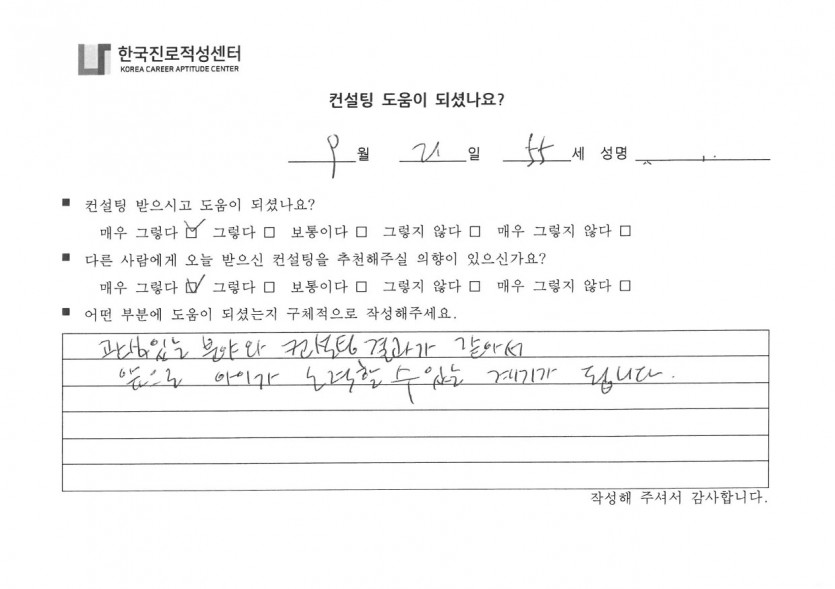 한국진로적성센터
KOREA CAREER APTITUDE CENTER
컨설팅 도움이 되셨나요?
9월 21일 55세 성명
■ 컨설팅 받으시고 도움이 되셨나요?
매우 그렇다 ☑ 그렇다 □ 보통이다 □ 그렇지 않다 □ 매우 그렇지 않다 □
■ 다른 사람에게 오늘 받으신 컨설팅을 추천해주실 의향이 있으신가요?
매우 그렇다 ☑ 그렇다 □ 보통이다 □ 그렇지 않다 □ 매우 그렇지 않다 □
■ 어떤 부분에 도움이 되셨는지 구체적으로 작성해주세요.
관심있는 분야와 컨설팅결과가 같아서
앞으로 아이가 노력할 수 있는 계기가 됩니다.
작성해 주셔서 감사합니다.